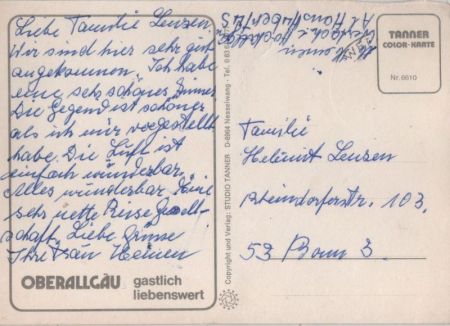 Liebe Familie Lenzen.
Wir sind hier sehr gut
angekommen. Ich habe
eine sehr schönes Zimmer
Die Gegend ist schöner
als ich mir vorgestellt
habe. Die Luft ist
einfach wunderbar.
Alles wunderbar. Eine
sehr nette Reise Gesell-
schaft. Liebe Grüsse
Ihre Frau Heinen
OBERALLGÄU gastlich
liebenswert
Copyright und Verlag: STUDIO TANNER D-8964 Nesselwang - Tel. 0 83 6
TANNER
COLOR-KARTE
Nr. 6610
Familie
Helmut Lenzen
Rheindorferstr. 103.
53 Bonn 3.